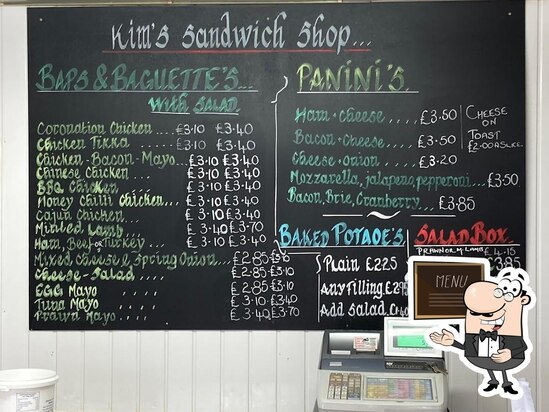 Kim's Sandwich Shop...
BAPS & BAGUETTE'S...
With SALAD
Coronation Chicken.... £3.10 £3.40
Chicken Tikka.... £3.10 £3.40
Chicken-Bacon-Mayo... £3.10 £3.40
Chinese Chicken.... £3.10 £3.40
BBQ Chicken £3.10 £3.40
Honey Chilli Chicken.... £3.10 £3.40
Cajun Chicken.... £3.10 £3.40
Minted Lamb.... £3.40 £3.70
Ham, Beef or Turkey... £3.10 £3.40
Mixed Cheese & Spring Onion....
Cheese-Salad.... £2.85 £3.10
EGG Mayo .... £2.85 £3.10
Tuna Mayo .... £3.10 £3.40
Prawn Mayo.... £3.40 £3.70
PANINI'S
Ham+Cheese.... £3.50
Bacon+Cheese.... £3.50
Cheese+Onion.... £3.20
Mozzarella, jalapeno, pepperoni... £3.50
Bacon, Brie, Cranberry... £3.85
CHEESE
ON
TOAST
BAKED POTAOE'S
Plain £2.25
Any Filling £2.95
Add Salad
SALAD BOX
PRAWN OR M LAMB £4.15
MENU